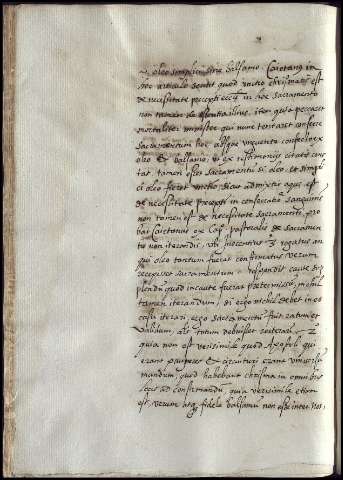 oleo simplici sine balsamo. Caietanus in
hoc articulo sentit quod unctio chrismatis est
de necessitate precepti eccl. in hoc sacramento
non tamen de essentialibus, ita quod peccaret
mortaliter minister qui nunc tentaret conficere
sacramentum hoc absque unguento confecto ex
oleo et balsamo, ut ex testimoniis citatis cons
tat. tamen fieret sacramentum si oleo simpli
ci oleo fieret unctio sicut admixtio aque est
de necessitate precepti in consecratione sanguinis
non tamen est de necessitate sacramenti. pro
bat Caietanus ex Cap. pastoralis de sacramen
tis non iterandis, ubi inocentius 3 rogatus an
qui oleo tantum fuerat confirmatus verum
recepisset sacramentum respondit caute sup
plendum quod incaute fuerat pretermissum, nihil
tamen iterandum, si ergo nichil debet in eo
casu iterari, ergo sacramentum fuit ratum et
validum, alias totum debuisset reiterari.
quia non est verisimile quod Apostoli qui
erant pauperes et circuituri erant universum
mundum, quod habebant chrisma in omnibus
locis ad confirmandum, quia verisimile etiam
est, verum atque fidele balsamum non esse inter nos.